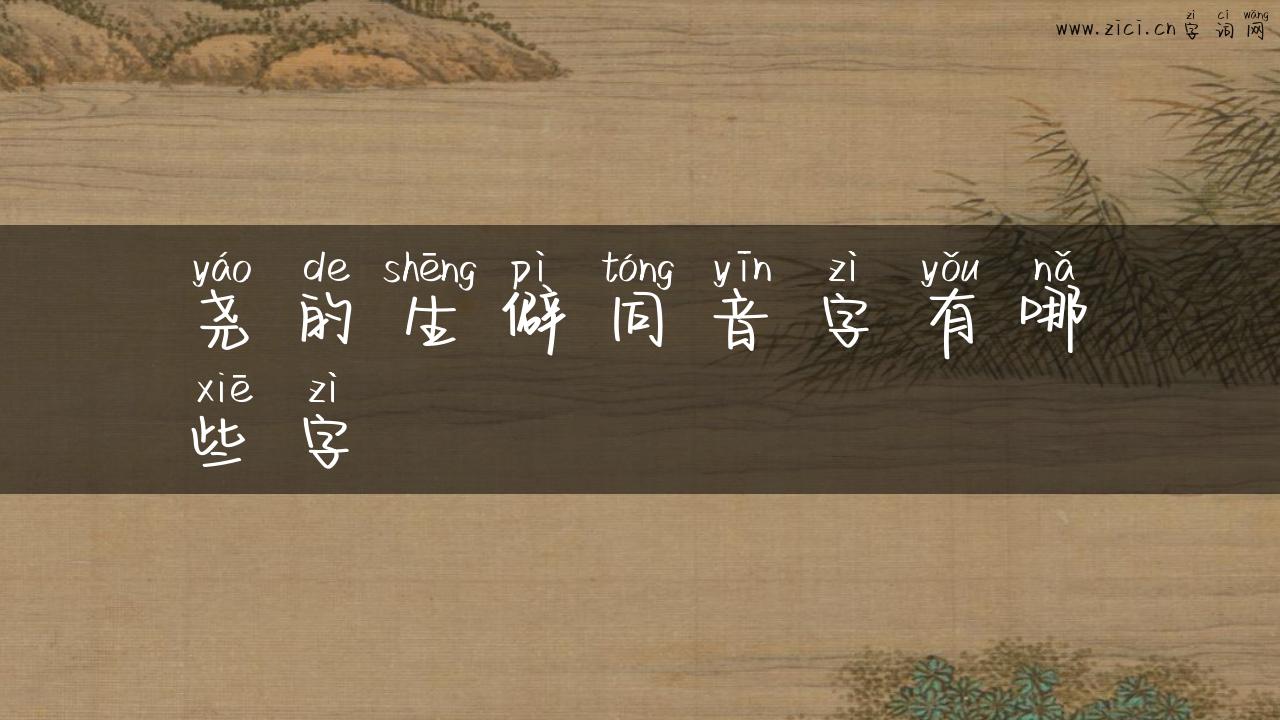 zì cí wǎng
www.zici.cn 字词网
yáo de shēng pì tóng yīn zì yǒu nǎ
尧的生僻同音字有哪
xiē zì
些字